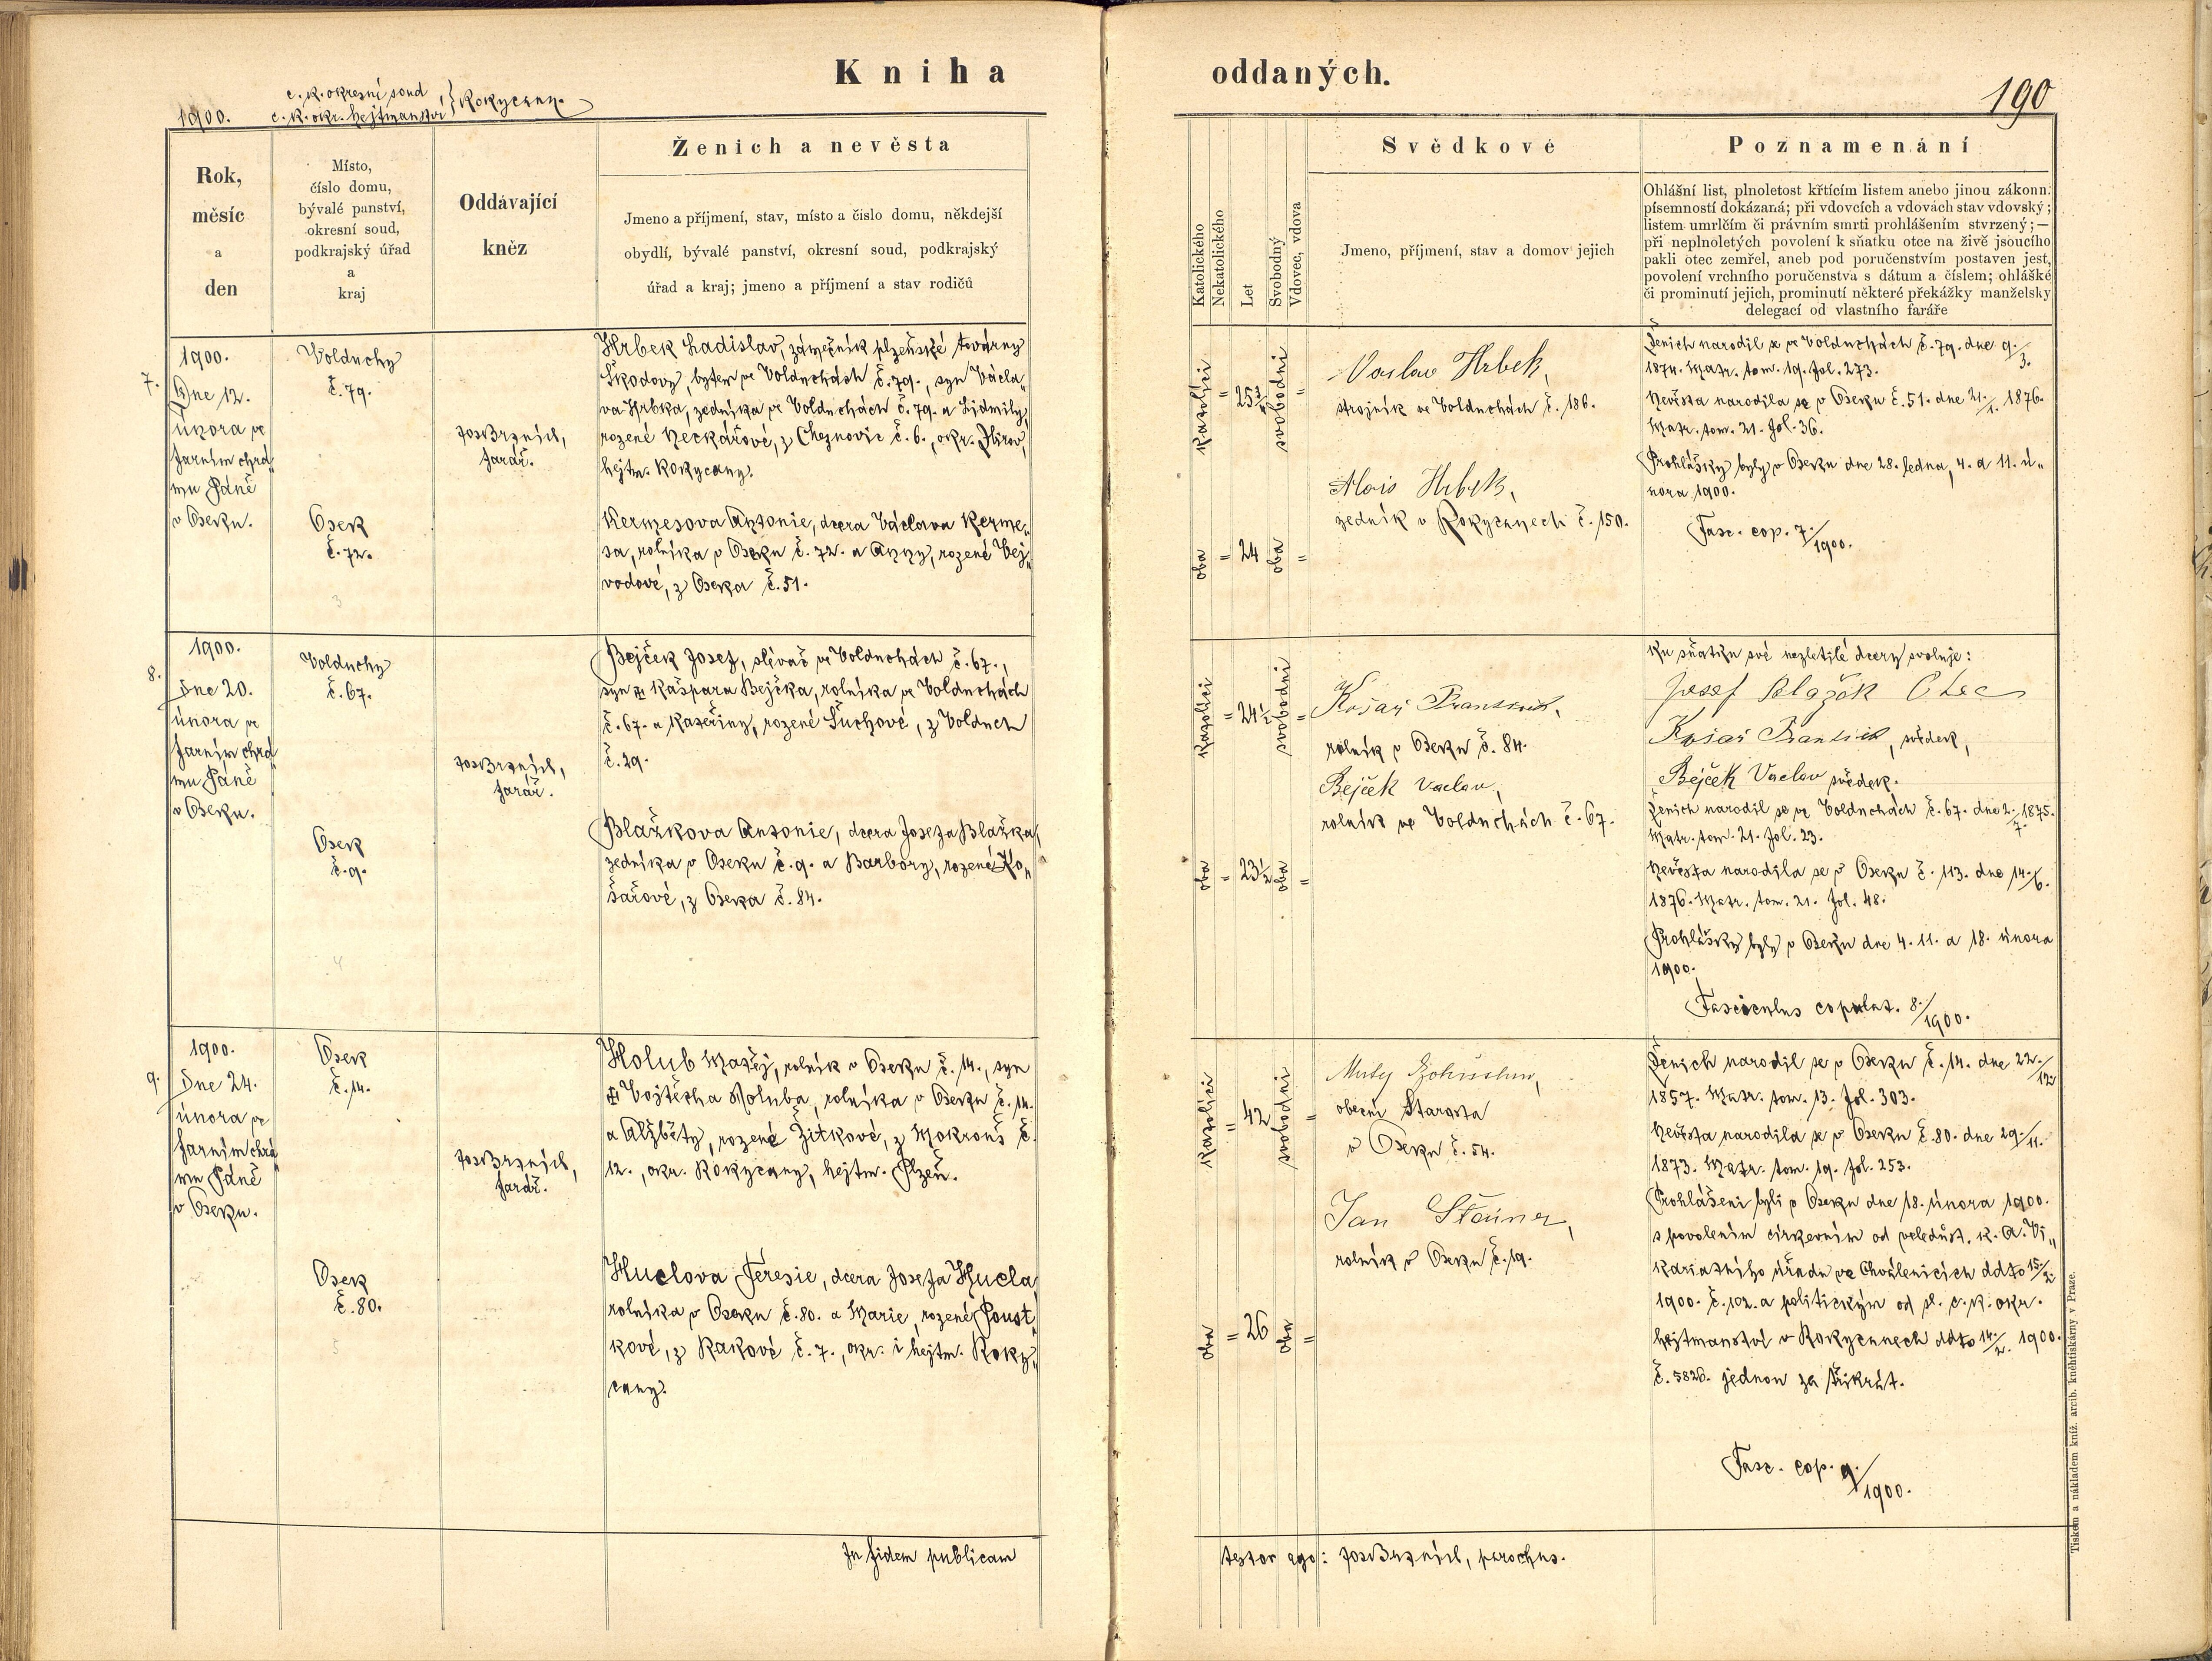 Kniha oddaných.
190
1900.
c. k. okresní soud
c. k. okr. hejtmanství } Rokycany.
Rok,
měsíc
a
den
Místo,
číslo domu,
bývalé panství,
okresní soud,
podkrajský úřad
a
kraj
Oddávající
kněz
Ženich a nevěsta
Jmeno a příjmení, stav, místo a čislo domu, někdejší
obydlí, bývalé panství, okresní soud, podkrajský
úřad a kraj; jmeno a příjmení a stav rodičů
Katolického
Nekatolického
Let
Svobodný
Vdovec, vdova
Svědkové
Jmeno, příjmení, stav a domov jejich
Poznamenání
Ohlášní list, plnoletost křtícím listem anebo jinou zákonn.
písemností dokázaná; při vdovcích a vdovách stav vdovský;
listem umrlčím či právním smrti prohlášením stvrzený; —
při neplnoletých povolení k sňatku otce na živě jsoucího
pakli otec zemřel, aneb pod poručenstvím postaven jest,
povolení vrchního poručenstva s dátum a číslem; ohlášké
či prominutí jejich, prominutí některé překážky manželsky
delegací od vlastního faráře
7.
1900.
Dne 12.
února ve
farním chrá„
mu Páně
v Oseku.
Volduchy
č. 79.
Osek
č. 72.
Jos Brznich,
farář.
Hrbek Ladislav, zámečník plzeňské továrny
Škodovy, bytem ve Volduchách č. 79., syn Václa„
va Hrbka, zedníka ve Volduchách č. 79. a Lidmily,
rozené Neckářové, z Cheznovic č. 6., okr. Zbirov,
hejtm. Rokycany.
Kermesova Antonie, dcera Václava Kerme„
sa, rolníka v Oseku č. 72. a Anny, rozené Vej„
vodové, z Oseka č. 51.
3
katolíci
oba
= 25 3/4
= 24
svobodni
oba
=
=
Vaslav Hrbek,
strojník ve Volduchách č. 186.
Alois Hrbek,
zedník v Rokycanech č. 150.
Ženich narodil se ve Volduchách č. 79. dne 9./3.
1874. Matr. tom. 19. fol. 273.
Nevěsta narodila se v Oseku č. 51. dne 21./1. 1876.
Matr. tom. 21. fol. 36.
Prohlášky byly v Oseku dne 28. ledna, 4. a 11. ú„
nora 1900.
Fasc. cop. 7./1900.
8.
1900.
Dne 20.
února ve
farním chrá„
mu Páně
v Oseku.
Volduchy
č. 67.
Osek
č. 9.
Jos Brznich,
farář.
Bejček Josef, slévač ve Volduchách č. 67.,
syn ✠ Kašpara Bejčka, rolníka ve Volduchách
č. 67. a Kateřiny, rozené Šuchové, z Volduch
č. 29.
Blažkova Antonie, dcera Josefa Blažka,
zedníka v Oseku č. 9. a Barbory, rozené Ko„
šařové, z Oseka č. 84.
4
katolíci
oba
= 24 1/2
= 23 1/2
svobodni
oba
=
=
Košař František,
rolník v Oseku č. 84.
Bejček Vaclav,
rolník ve Volduchách č. 67.
Ku sňatku své nezletilé dcery svoluje:
Josef Blažek Otec
Košař František, svědek,
Bejček Vaclav svědek.
Ženich narodil se ve Volduchách č. 67. dne 2./7. 1875.
Matr. tom. 21. fol. 23.
Nevěsta narodila se v Oseku č. 113. dne 14./6.
1876. Matr. tom. 21. fol. 48.
Prohlášky byly v Oseku dne 4. 11. a 18. února
1900.
Fasciculus copulat. 8./1900.
9.
1900.
Dne 24.
února ve
farním chrá„
mu Páně
v Oseku.
Osek
č. 14.
Osek
č. 80.
Jos Brznich,
farář.
Holub Matěj, rolník v Oseku č. 14., syn
✠ Vojtěcha Holuba, rolníka v Oseku č. 14.
a Alžběty, rozené Žitkové, z Mokrouš č.
12., okr. Rokycany, hejtm. Plzeň.
Huclova Teresie, dcera Josefa Hucla,
rolníka v Oseku č. 80. a Marie, rozené Poust„
kové, z Rakové č. 7., okr. i hejtm. Roky„
cany.
5
katolíci
oba
= 42
= 26
svobodni
oba
=
=
obecní Starosta
v Oseku č. 54.
Jan
rolník v Oseku č. 19.
Ženich narodil se v Oseku č. 14. dne 22./12.
1857. Matr. tom. 13. fol. 303.
Nevěsta narodila se v Oseku č. 80. dne 29./11.
1873. Matr. tom. 19. fol. 253.
Prohlášeni byli v Oseku dne 18. února 1900.
s povolením církevním od veledůst. k. a. Vi„
kariatního úřadu ve Chválenicích ddto 15./2.
1900. č. 102. a politickým od sl. c. k. okr.
hejtmanství v Rokycanech ddto 14./2. 1900.
č. 5826. jednou za třikrát.
Fasc. cop. 9./1900.
In fidem publicam testor ego: Jos Brznich, parochus.
Tiskem a nákladem kníž. arcib. knéhtiskárny v Praze.